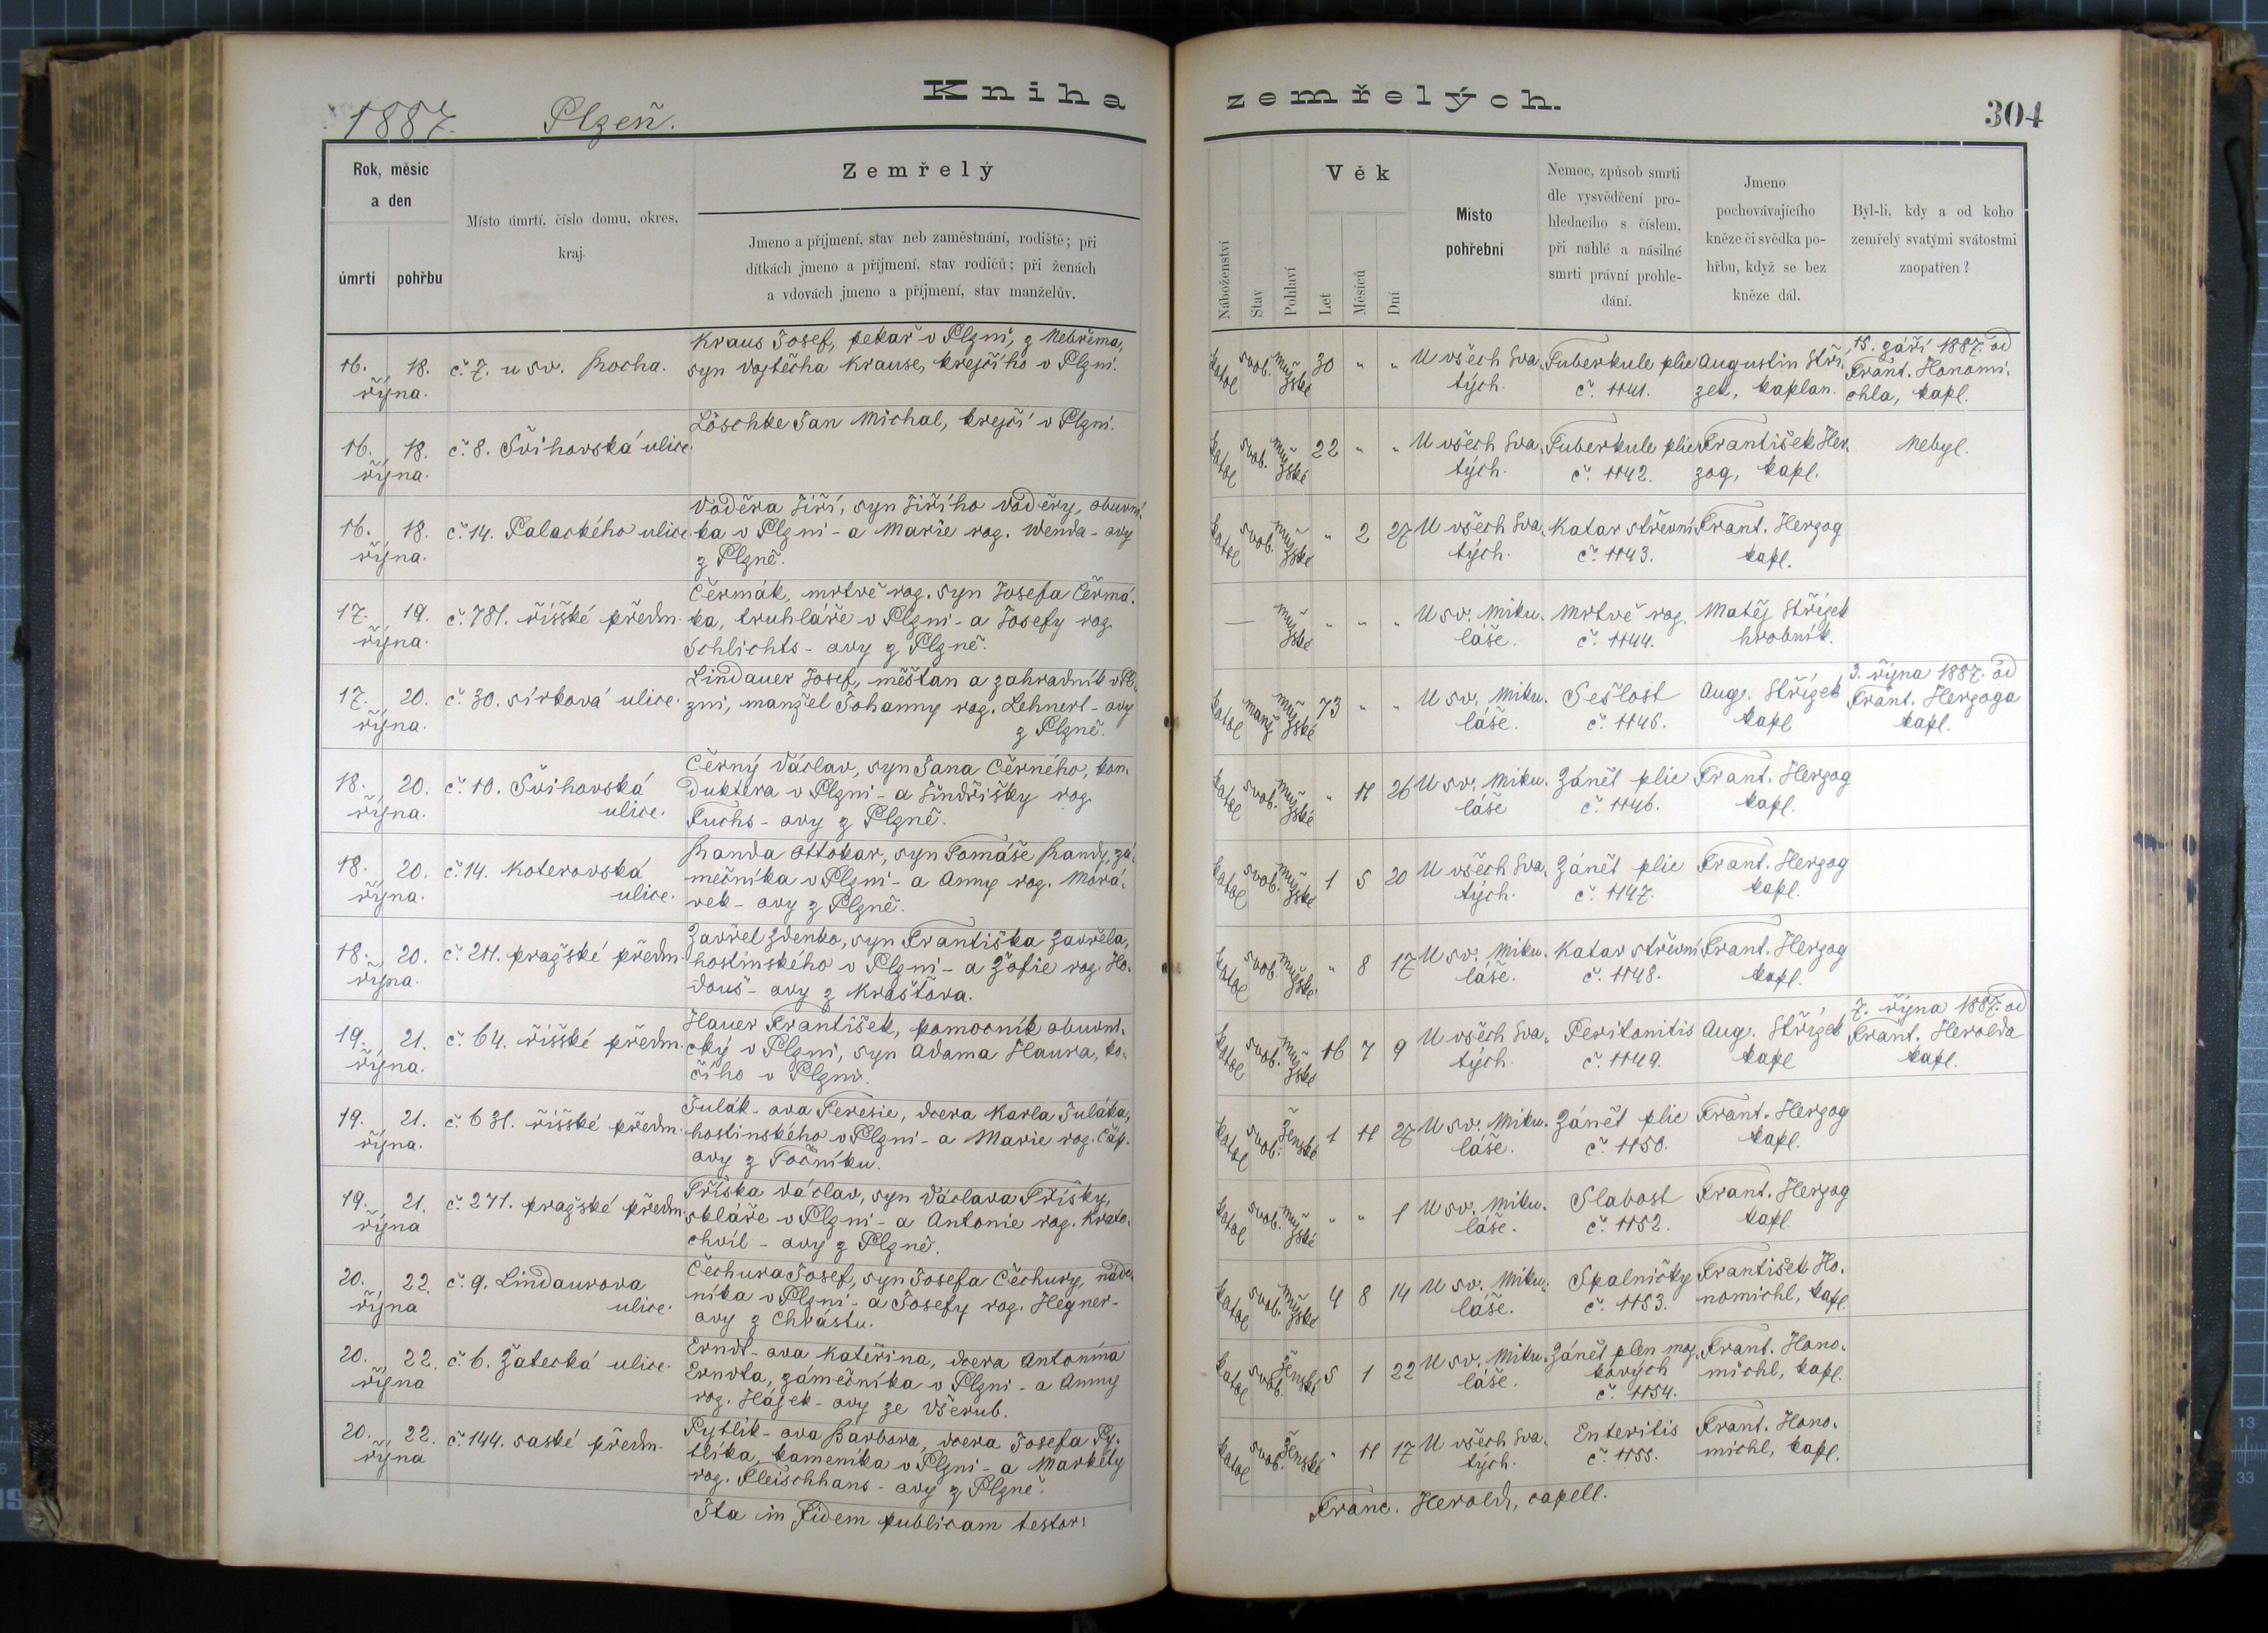 Kniha zemřelých.
1887. Plzeň.
304
Rok, měsíc
a den
úmrtí pohřbu
Místo úmrtí, číslo domu, okres,
kraj.
Zemřelý
Jmeno a příjmení, stav neb zaměstnání, rodiště; při
dítkách jmeno a příjmení, stav rodičů; při ženách
a vdovách jmeno a příjmení, stav manželův.
Náboženství
Stav
Pohlaví
Věk
Let
Měsíců
Dní
Místo
pohřební
Nemoc, způsob smrti
dle vysvědčení pro-
hledacího s číslem,
při náhlé a násilné
smrti právní prohle-
dání.
Jmeno
pochovávajícího
kněze či svědka po-
hřbu, když se bez
kněze dál.
Byl-li, kdy a od koho
zemřelý svatými svátostmi
zaopatřen?
16. 18.
října.
č. 7. u sv. Rocha.
Kraus Josef, pekař v Plzni, z Nebřema,
syn Vojtěcha Krause, krejčího v Plzni.
katol svob. mužské 30 " "
U všech Sva-
tých.
Tuberkule plic
č. 1141.
Augustin Stří-
zek, kaplan.
15. září 1887. od
Frant. Honomi-
chla, kapl.
16. 18.
října.
č. 8. Švihovská ulice.
Löschke Jan Michal, krejčí v Plzni.
katol svob. mužské 22 " "
U všech Sva-
tých.
Tuberkule plic
č. 1142.
František Her-
zog, kapl.
Nebyl.
16. 18.
října.
č. 14. Palackého ulice.
Voděra Jiří, syn Jiřího Voděry, obuvní-
ka v Plzni - a Marie roz. Wenda - ovy
z Plzně.
katol svob. mužské " 2 27
U všech Sva-
tých.
Katar střevní
č. 1143.
Frant. Herzog
kapl.
17. 19.
října.
č. 781. říšské předm.
Čermák, mrtvě roz. syn Josefa Čermá-
ka, truhláře v Plzni - a Josefy roz.
Schlichts - ovy z Plzně.
— mužské " " "
U sv. Miku-
láše.
Mrtvě roz.
č. 1144.
Matěj Střízek
hrobník.
17. 20.
října.
č. 30. sirková ulice.
Lindauer Josef, měšťan a zahradník v Pl-
zni, manžel Johanny roz. Lehnert - ovy
z Plzně.
katol manž mužské 73 " "
U sv. Miku-
láše.
Sešlost
č. 1145.
Aug. Střízek
kapl
3. října 1887. od
Frant. Herzoga
kapl.
18. 20.
října.
č. 10. Švihovská
ulice.
Černý Václav, syn Jana Černého, kon-
duktera v Plzni - a Jindřišky roz.
Fuchs - ovy z Plzně.
katol svob. mužské " 11 26
U sv. Miku-
láše
Zánět plic
č. 1146.
Frant. Herzog
kapl.
18. 20.
října.
č. 14. Koterovská
ulice.
Randa Ottokar, syn Tomáše Randy, zá-
mečníka v Plzni - a Anny roz. Morá-
vek - ovy z Plzně.
katol svob. mužské 1 5 20
U všech Sva-
tých.
Zánět plic
č. 1147.
Frant. Herzog
kapl.
18. 20.
října.
č. 211. pražské předm.
Zavřel Zdenko, syn Františka Zavřela,
hostinského v Plzni - a Žofie roz. Ho-
douš - ovy z Kraštova.
katol svob. mužské " 8 17
U sv. Miku-
láše.
Katar střevní
č. 1148.
Frant. Herzog
kapl.
19. 21.
října.
č. 64. říšské předm.
Hauer František, pomocník obuvni-
cký v Plzni, syn Adama Haura, ko-
čího v Plzni.
katol svob. mužské 16 7 9
U všech Sva-
tých.
Peritonitis
č. 1149.
Aug. Střízek
kapl
7. října 1887. od
Frant. Herolda
kapl.
19. 21.
října.
č. 631. říšské předm.
Julák - ova Teresie, dcera Karla Juláka,
hostinského v Plzni - a Marie roz. Čáp-
ovy z Točníku.
katol svob. ženské 1 11 27
U sv. Miku-
láše.
Zánět plic
č. 1150.
Frant. Herzog
kapl.
19. 21.
října
č. 271. pražské předm.
Tříska Václav, syn Václava Třísky,
skláře v Plzni - a Antonie roz. Krato-
chvíl - ovy z Plzně.
katol svob. mužské " " 1
U sv. Miku-
láše.
Slabost
č. 1152.
Frant. Herzog
kapl.
20. 22.
října
č. 9. Lindaurova
ulice.
Čechura Josef, syn Josefa Čechury, náde-
níka v Plzni - a Josefy roz. Hegner-
ovy z Chrástu.
katol svob. mužské 4 8 14
U sv. Miku-
láše.
Spalničky
č. 1153.
František Ho-
nomichl, kapl.
20. 22.
října
č. 6. Žatecká ulice.
Erndt - ova Kateřina, dcera Antonína
Erndta, zámečníka v Plzni - a Anny
roz. Hájek - ovy ze Všerub.
katol svob. ženské 5 1 22
U sv. Miku-
láše.
Zánět plen moz-
kových
č. 1154.
Frant. Hono-
michl, kapl.
20. 22.
října
č. 144. saské předm.
Pytlík - ova Barbora, dcera Josefa Py-
tlíka, kameníka v Plzni - a Markéty
roz. Fleischhans - ovy z Plzně.
katol svob. ženské " 11 17
U všech Sva-
tých.
Enteritis
č. 1155.
Frant. Hono-
michl, kapl.
Ita in fidem publicam testor:
Franc. Herold, capell.